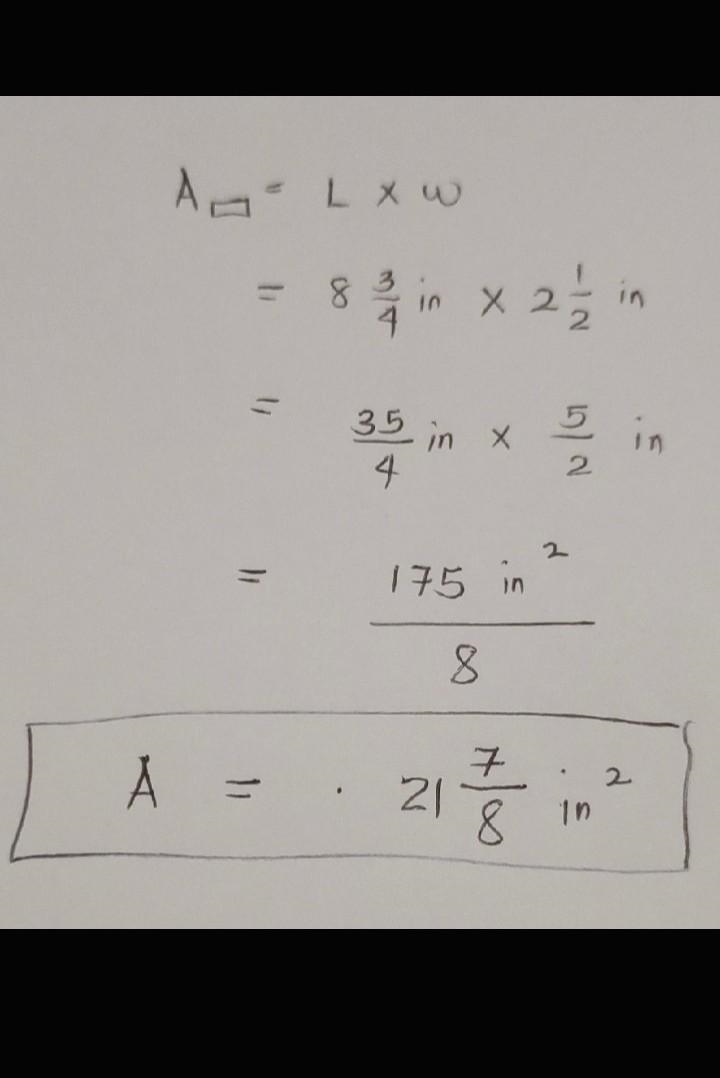 A▭ = L x w
= 8 3/4 in x 2 1/2 in
= 35/4 in x 5/2 in
= 175 in²/8
A = . 21 7/8 in²